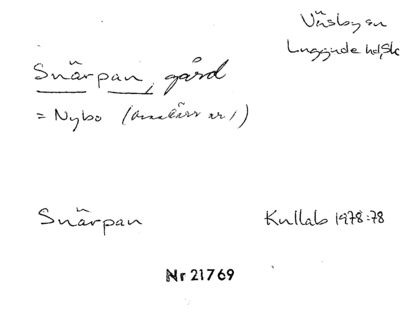 Väsby sn
Luggude hd, Sk
Snärpan, gård
= Nybo ( nr 1)
Snärpan
Kullab 1978:78
Nr 21769